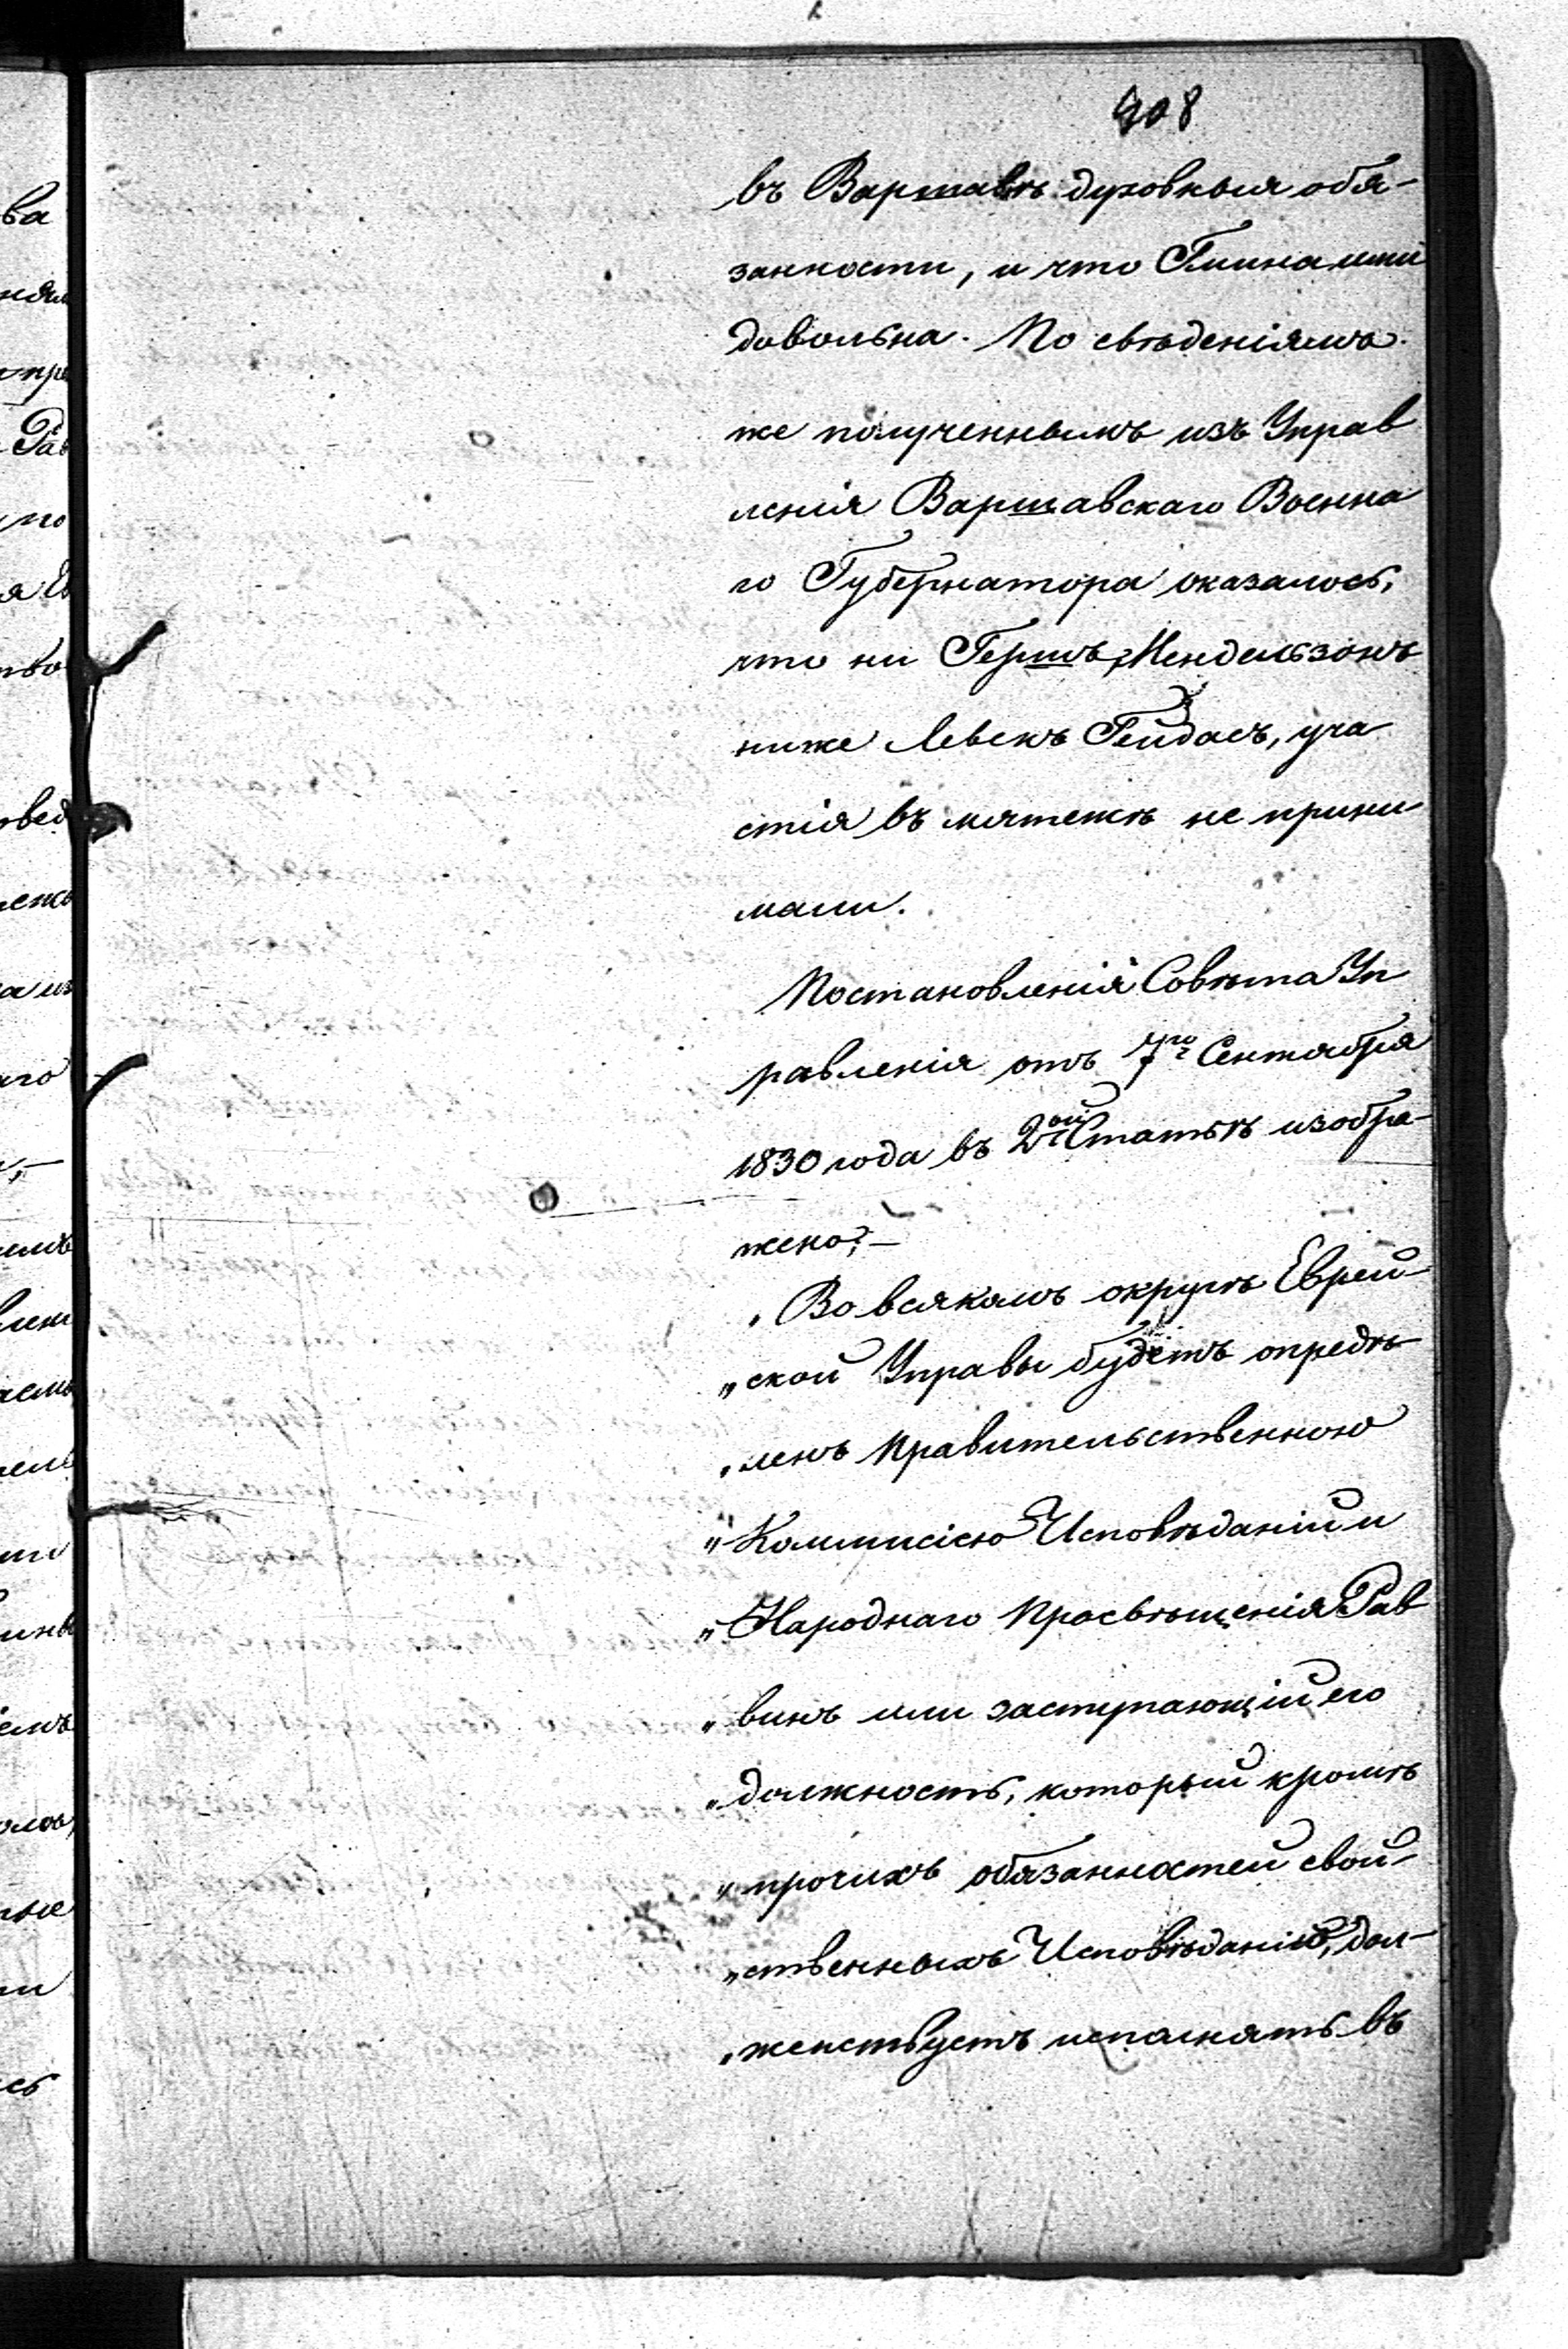 308
въ Варшавѣ духовныя обя-
занности, и что Гмина ими
довольна. По свѣденіямъ
же полученнымъ изъ Управ
ленія Варшавскаго Военна
го Губернатора оказалось,
что ни Гершъ Мендельзонъ
ниже Левекъ Гейдасъ, уча
стія въ мятежѣ не прини
мали.
Постановленія Совѣта Уп
равленія отъ 7го Сентября
1830 года въ 2ой Статьѣ изобра-
жено:—
„Во всякомъ округѣ Еврей-
„ской Управы будетъ опредѣ-
„ленъ Правительственною
„Коммисіею Исповѣданій и
„Народнаго Просвѣщенія Рав
„винъ или заступающій его
„должность, который кромѣ
„прочихъ обязанностей свой-
„ственныхъ Исповѣданію, дол-
„женствуетъ исполнять въ